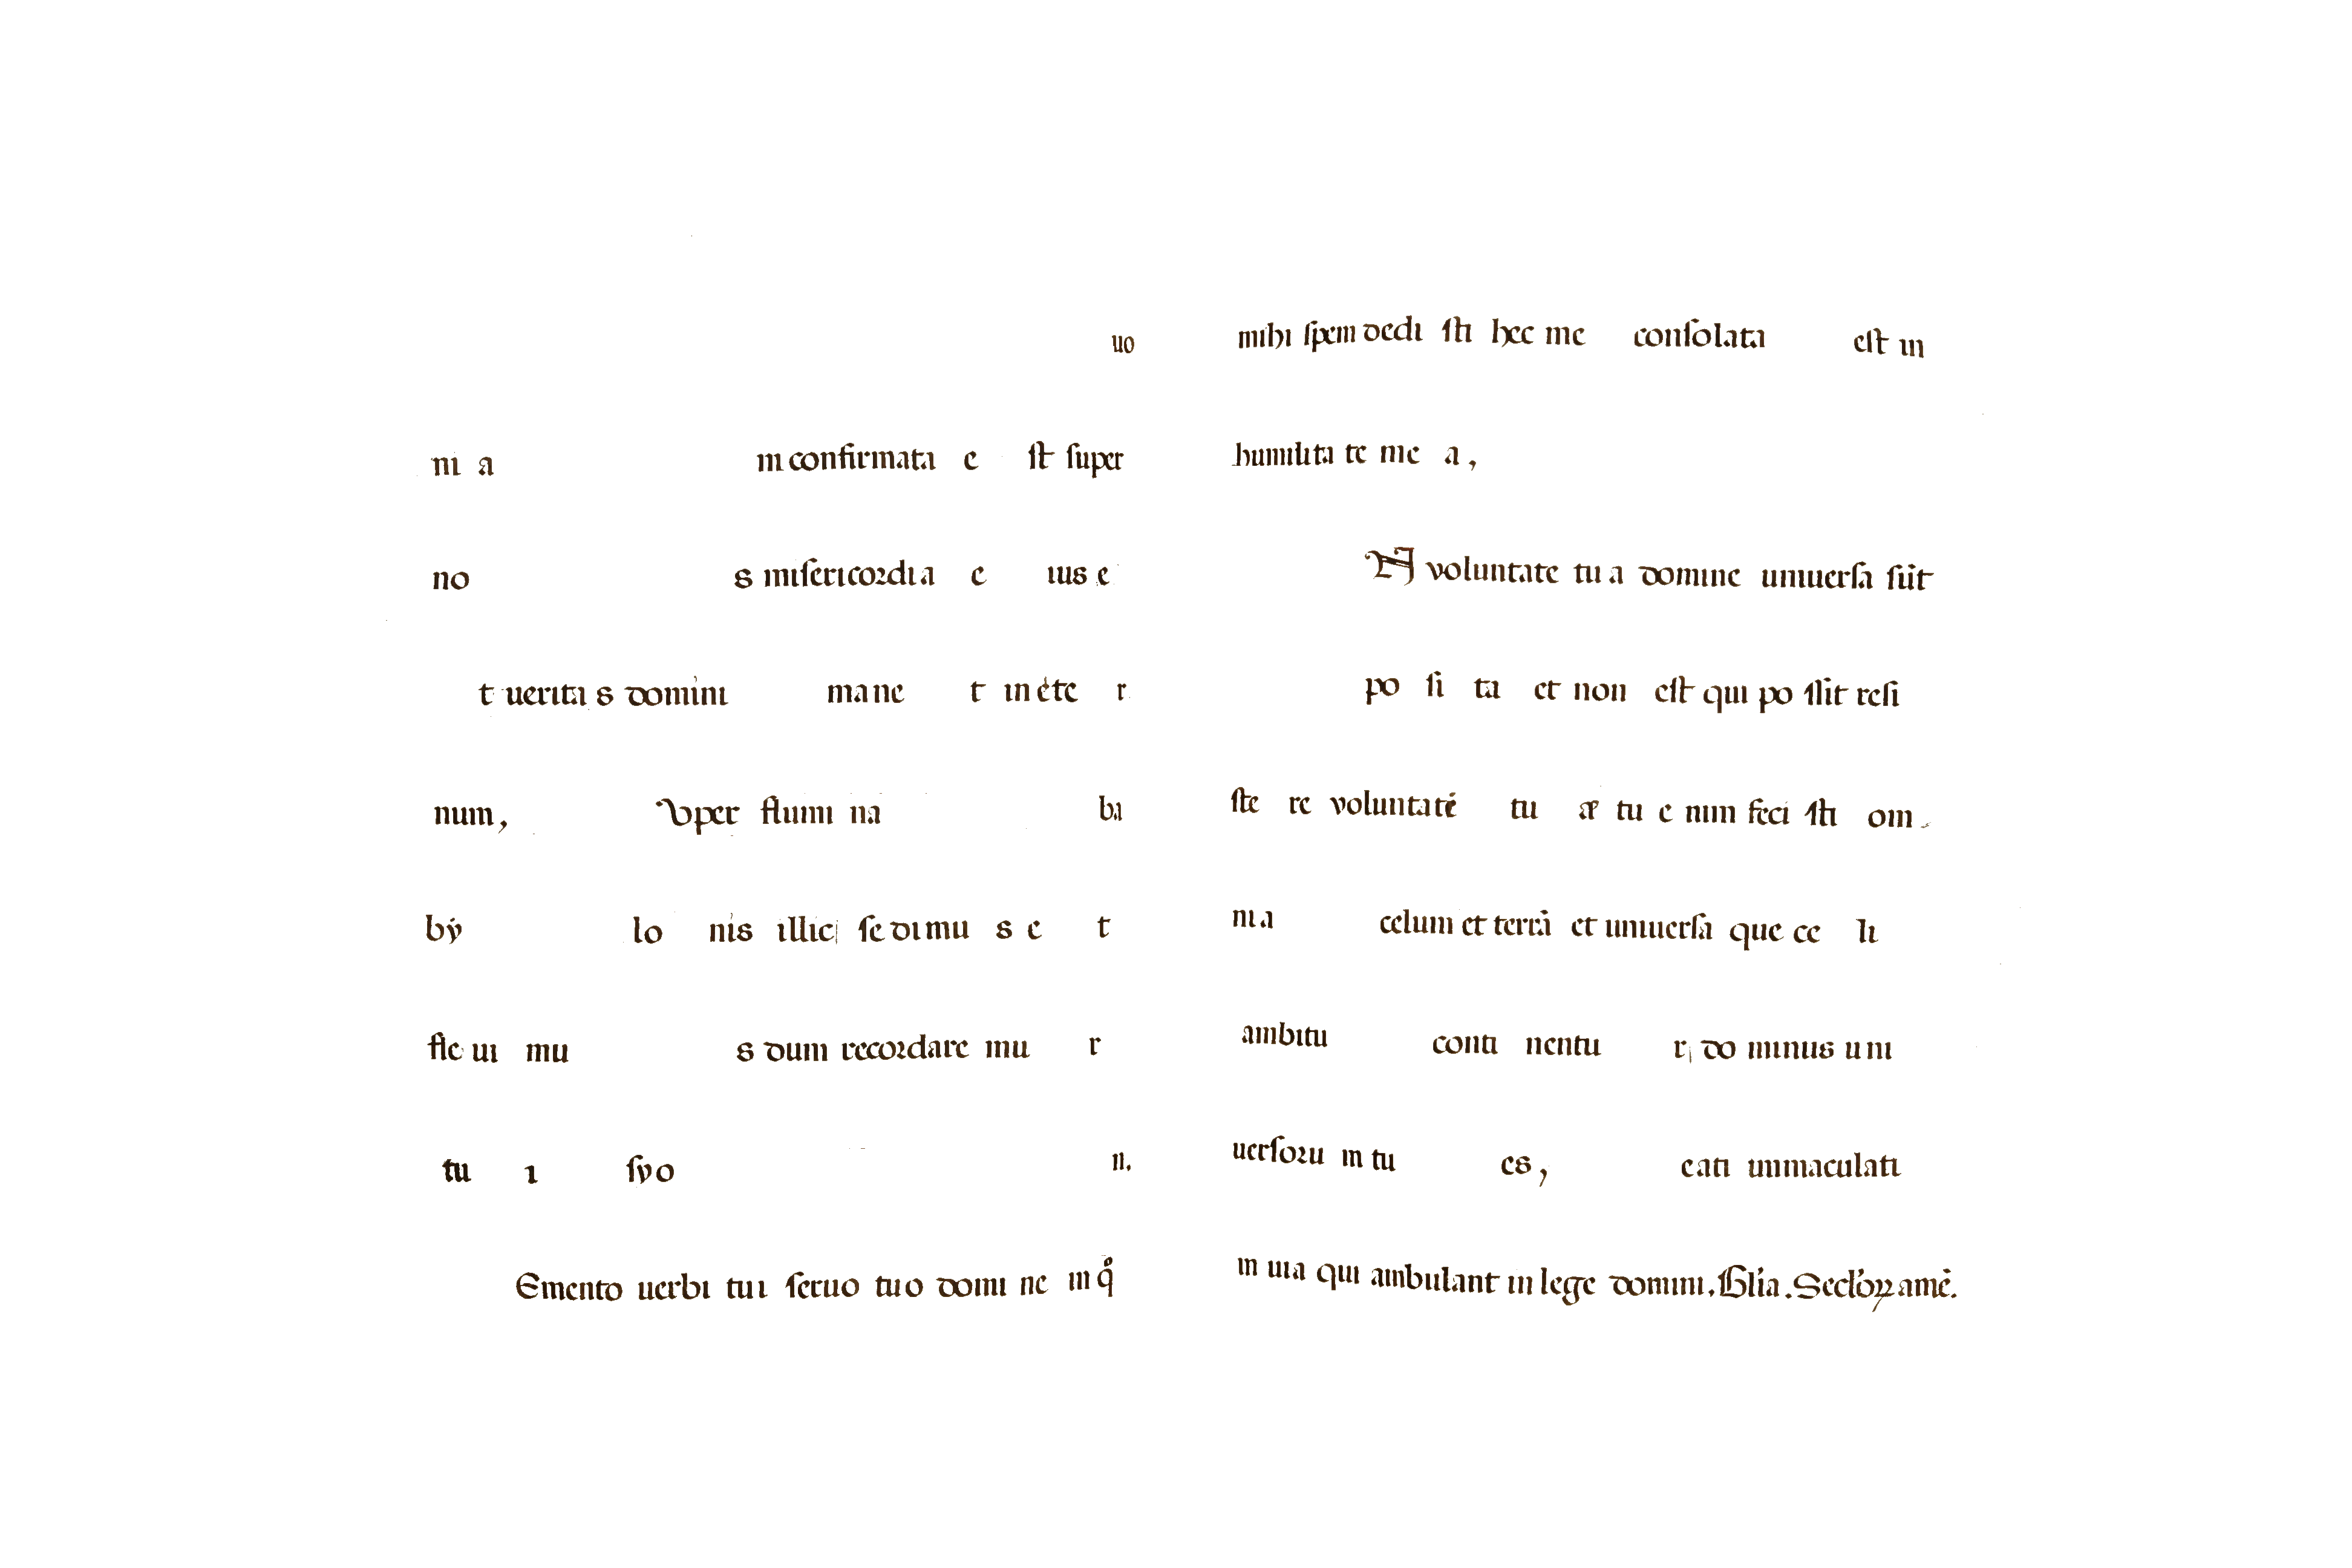 uo
ni a m confirmata e st super
no s misericordia e ius e
t uerita s domini mane t in éte r
num, Vper flumi na ba
bý lo nis illic se dimu s e t
fle ui mu s dum recordare mu r
tu i syo n.
Emento uerbi tui seruo tuo domi ne in qͦ
mihi spem dedi sti hec me consolata est in
humilita te me a,
N voluntate tu a domine uniuersa sūt
po si ta et non est qui po ssit resi
ste re voluntaté tu æ tu e nim feci sti om-
ni a celum et terrā et uniuersa que ce li
ambitu conti nentu r, do minus uni
uersoru m tu es, eati immaculati
in uia qui ambulant in lege domini. Glīa. Secl'oꝝ amē.